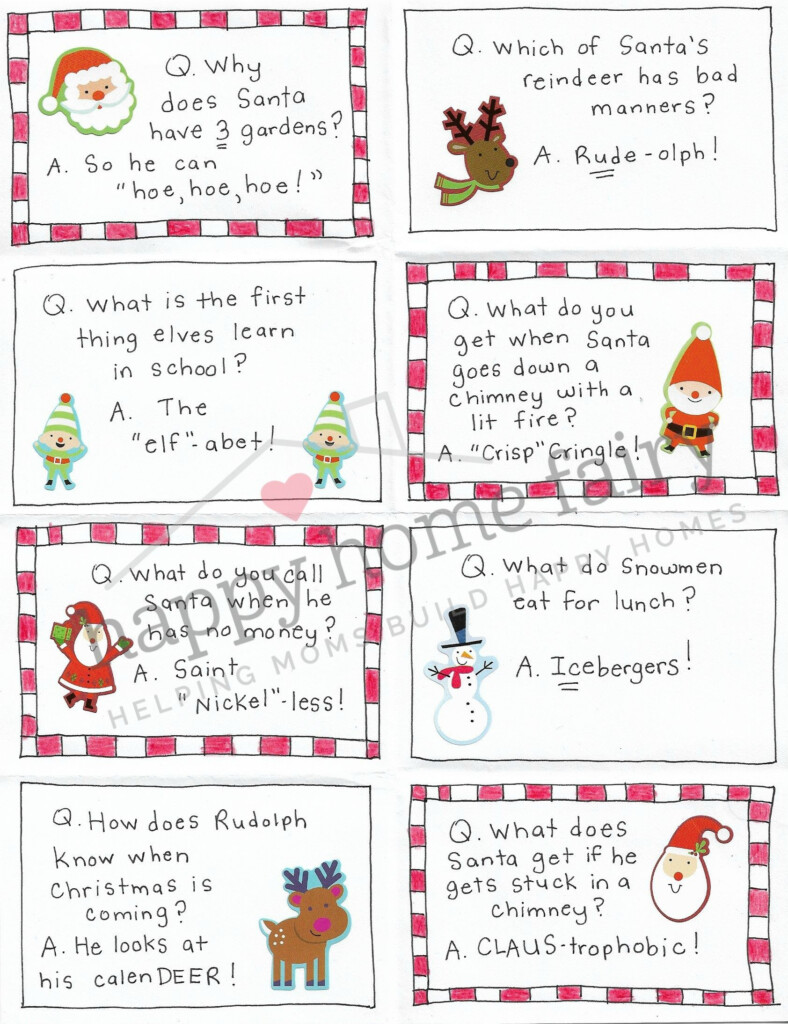 Q. Why
does Santa
have 3 gardens?
A. So he can
"hoe, hoe, hoe!"
Q. Which of Santa's
reindeer has bad
manners?
A. Rude-olph!
Q. What is the first
thing elves learn
in school?
A. The
"elf"-abet!
Q. What do you
get when Santa
goes down a
chimney with a
lit fire?
A. "Crisp" Cringle!
Q. What do you call
Santa when he
has no money?
A. Saint
"Nickel"-less!
Q. What do Snowmen
eat for lunch?
A. Icebergers!
Q. How does Rudolph
know when
Christmas is
coming?
A. He looks at
his calenDEER!
Q. What does
Santa get if he
gets stuck in a
chimney?
A. CLAUS-trophobic!
happy home fairy
HELPING MOMS BUILD HAPPY HOMES